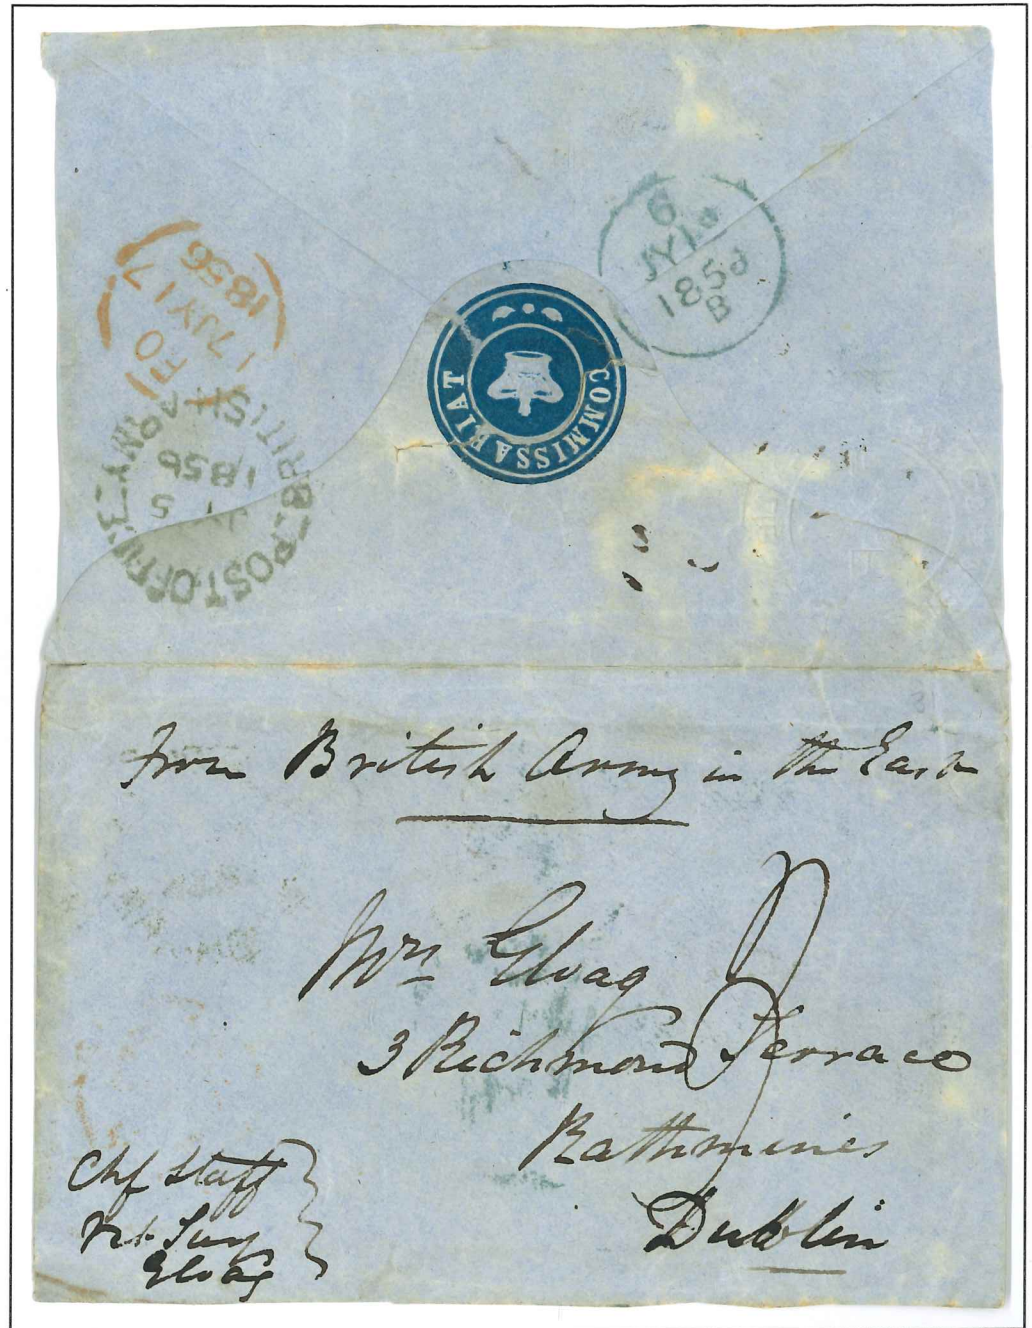 6
JY 18
185
B
PO
17 JY 17
1856
COMMISSARIAT
POST OFFICE
BRITISH ARMY
JY 5
1856
From British Army in the East
Mrs Gloag
3 Richmond Terrace
Rathmines
Dublin
Chf Staff
Vet Surg
Gloag